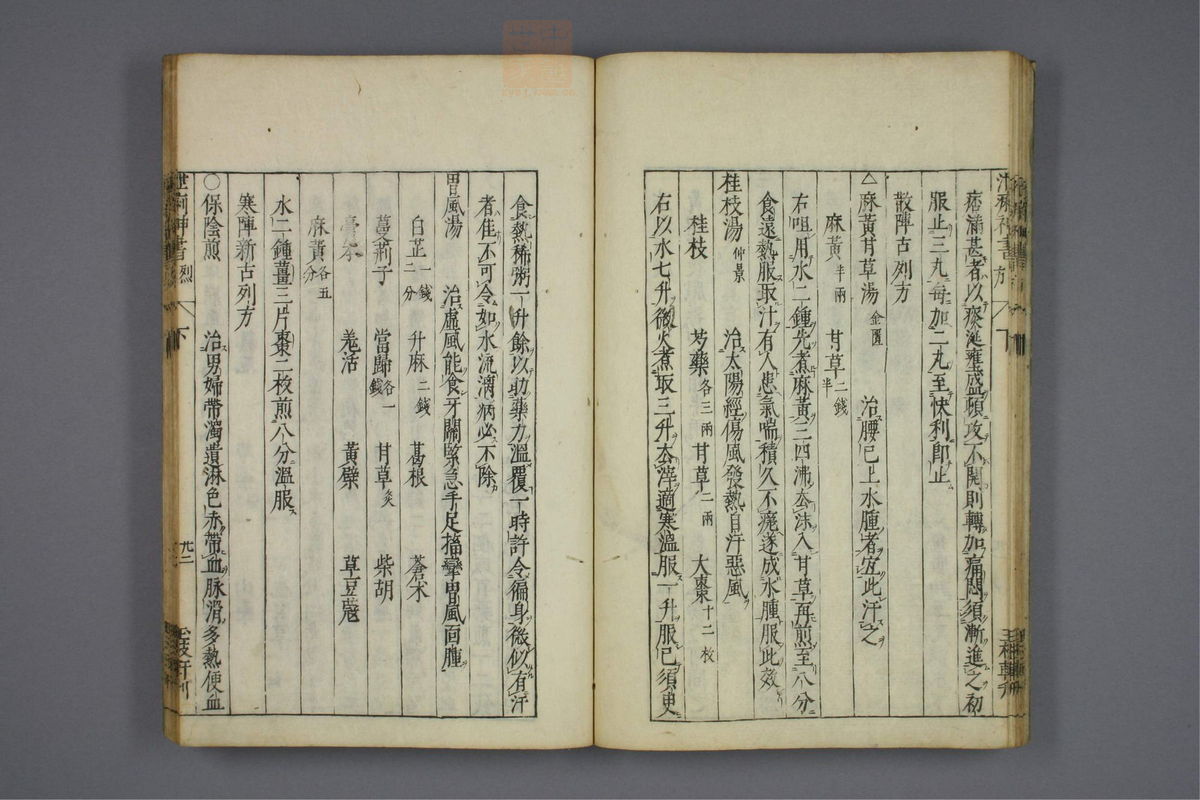 痞滿甚者以痰涎壅盛頓攻不開則轉加痛悶須漸進之初
服止三丸每加二丸至快利即止
散陣古列方
△麻黃甘草湯 金匱 治腰已上水腫者宜此汗之
麻黃半兩 甘草二錢半
右咀用水二鍾先煮麻黃三四沸去沫入甘草再煎至八分
食遠熱服取汁有人患氣喘積久不瘥遂成水腫服此效
桂枝湯 仲景 治太陽經傷風發熱自汗惡風
桂枝 芍藥各三兩 甘草二兩 大棗十二枚
右以水七升微火煮取三升去滓適寒溫服一升服已須臾
食熱稀粥一升餘以助藥力溫覆一時許令徧身微似有汗
者佳不可令如水流漓病必不除
胃風湯 治虛風能食牙關緊急手足搐攣胃風面腫
白芷一錢二分 升麻二錢 葛根 蒼朮
蔓荊子 當歸各一錢 甘草炙 柴胡
藁本 羌活 黃檗 草豆蔻
麻黃各五分
水二鍾薑三片棗二枚煎八分溫服
寒陣新古列方
○保陰煎 治男婦帶濁遺淋色赤帶血脉滑多熱便血
神書 烈 下